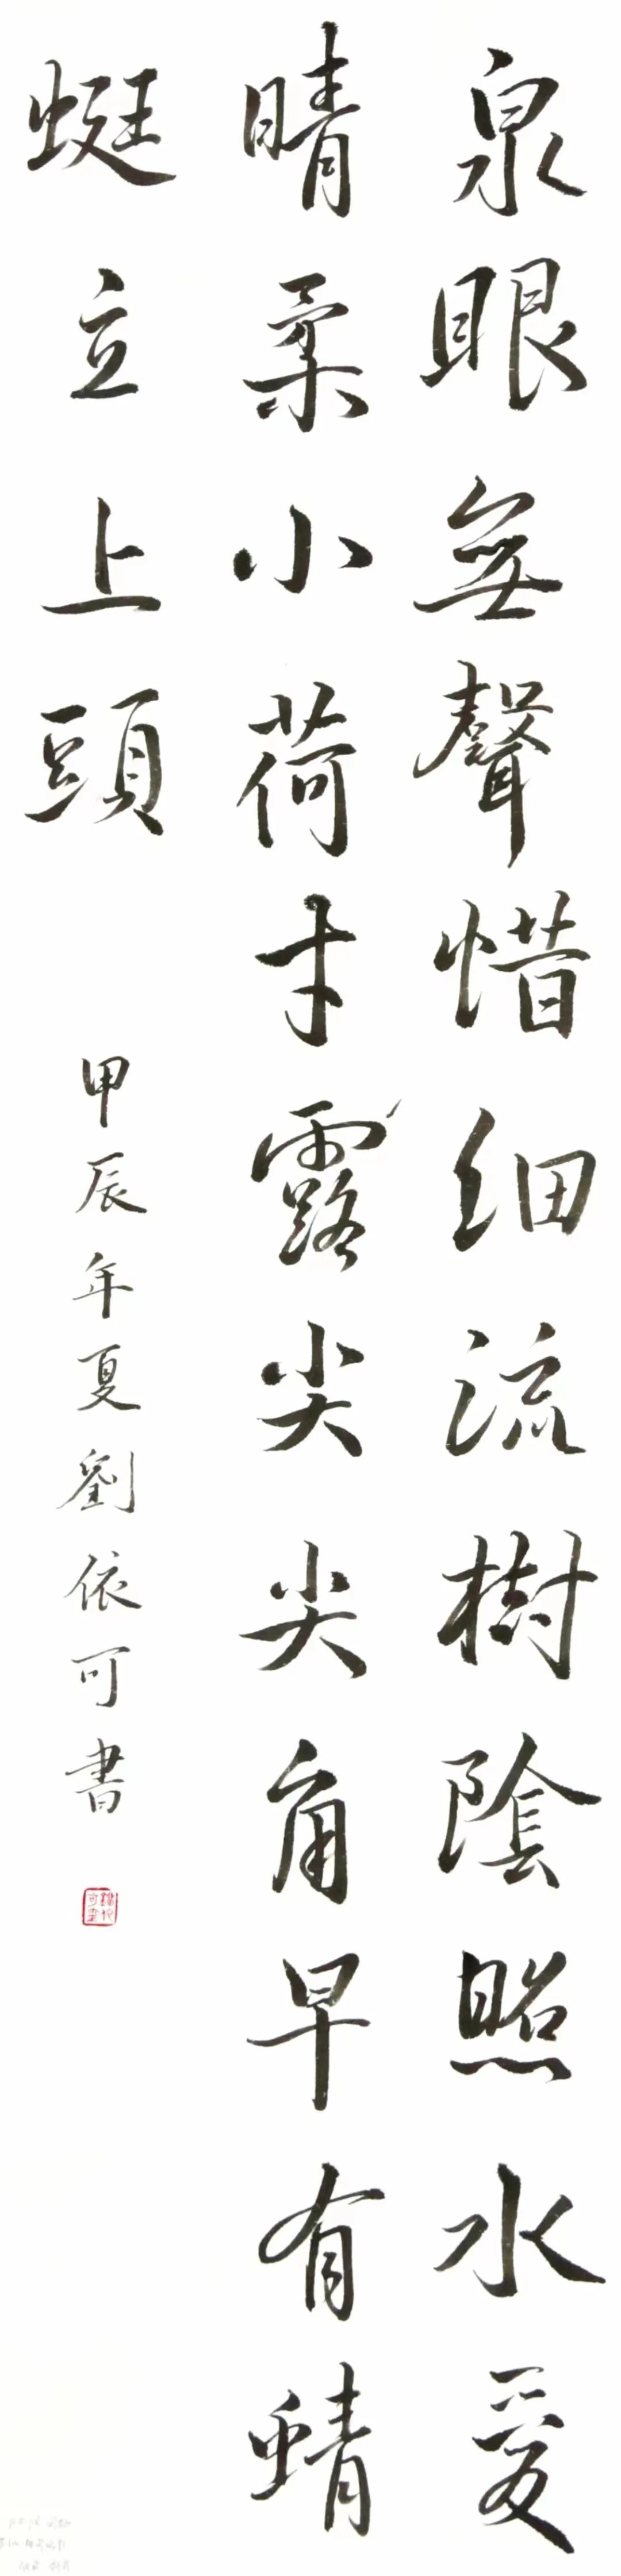 泉眼無聲惜细流樹陰照水愛
晴柔小荷才露尖尖角早有蜻
蜓立上頭
甲辰年夏劉依可書